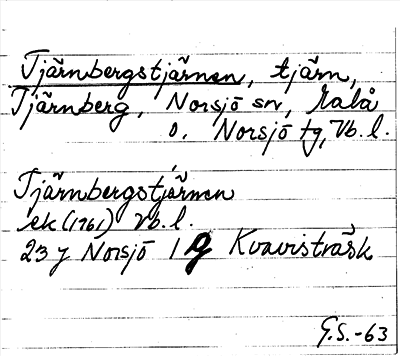 Tjärnbergstjärnen, tjärn,
Tjärnberg, Norsjö sn, Malå
o. Norsjö tg, Vb. l.
Tjärnbergstjärnen
ek (1961) Vb. l.
23 j Norsjö 1 g Kvavisträsk
G.S. -63